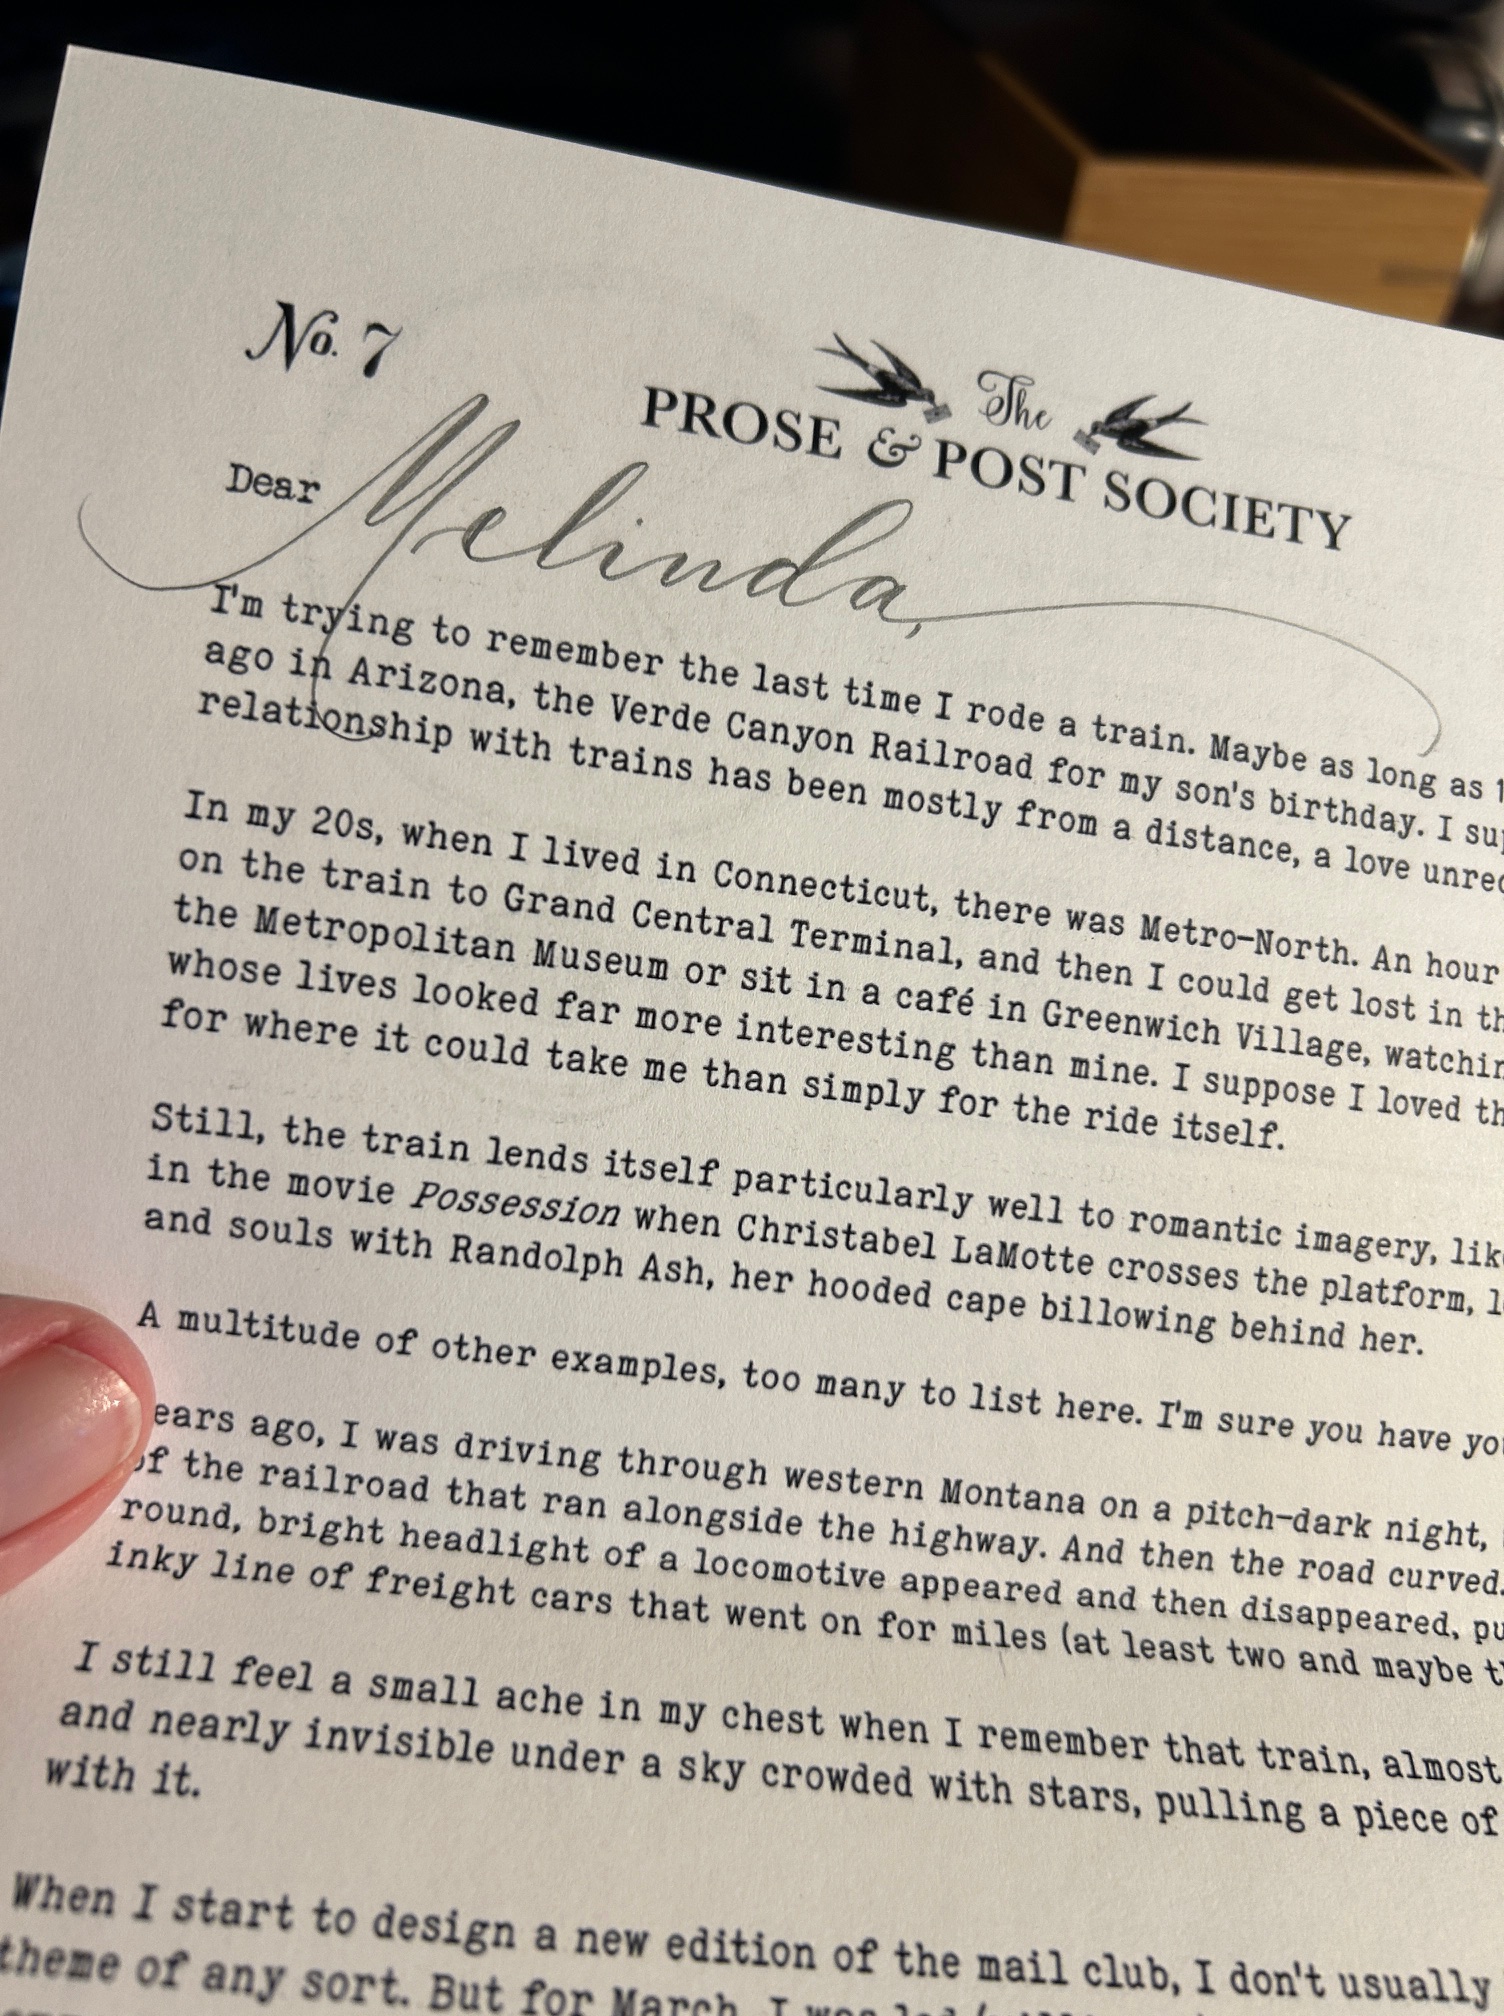 No. 7
The
PROSE & POST SOCIETY
Dear Melinda,
I'm trying to remember the last time I rode a train. Maybe as long as
ago in Arizona, the Verde Canyon Railroad for my son's birthday. I
relationship with trains has been mostly from a distance, a love
In my 20s, when I lived in Connecticut, there was Metro-North. An hour
on the train to Grand Central Terminal, and then I could get lost in
the Metropolitan Museum or sit in a café in Greenwich Village,
whose lives looked far more interesting than mine. I suppose I loved
for where it could take me than simply for the ride itself.
Still, the train lends itself particularly well to romantic imagery,
in the movie Possession when Christabel LaMotte crosses the platform,
and souls with Randolph Ash, her hooded cape billowing behind her.
A multitude of other examples, too many to list here. I'm sure you have
ears ago, I was driving through western Montana on a pitch-dark night,
of the railroad that ran alongside the highway. And then the road curved.
round, bright headlight of a locomotive appeared and then disappeared,
inky line of freight cars that went on for miles (at least two and maybe
I still feel a small ache in my chest when I remember that train, almost
and nearly invisible under a sky crowded with stars, pulling a piece of
with it.
When I start to design a new edition of the mail club, I don't usually
theme of any sort. But for March, I was led